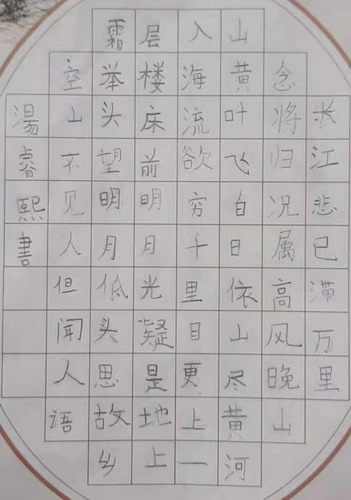 长江悲已滞万里
念将归况属高风晚山
山黄叶飞白日依山尽黄河
入海流欲穷千里目更上一
层楼床前明月光疑是地上
霜举头望明月低头思故乡
空山不见人但闻人语
湯睿熙書